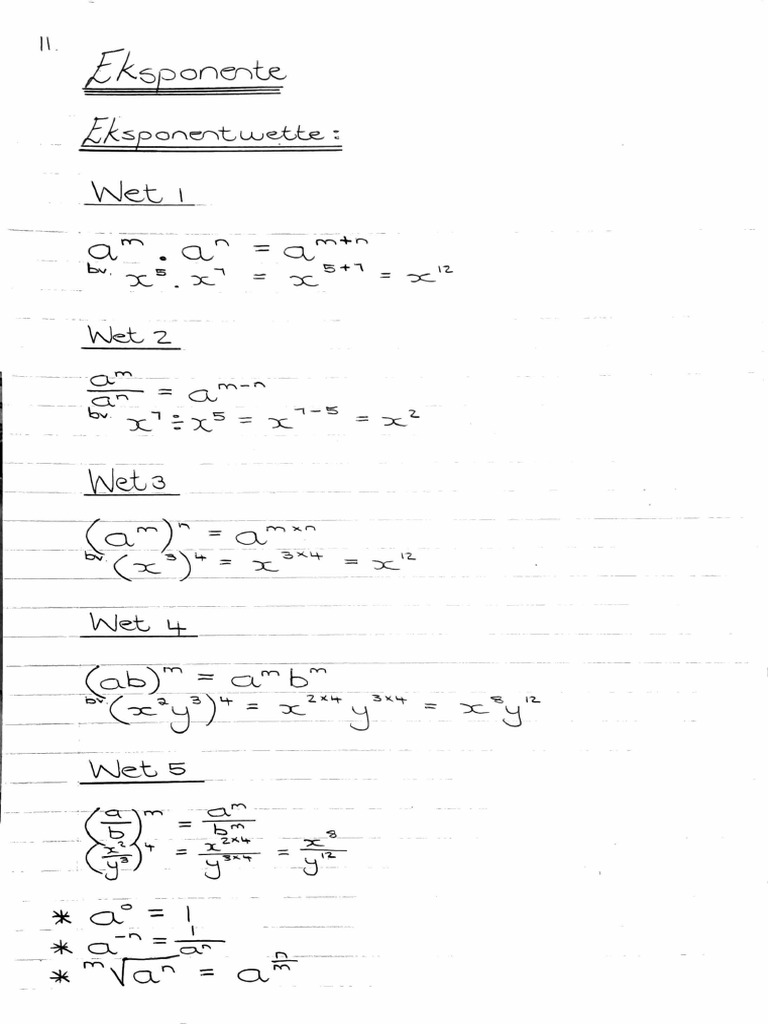 11.
Eksponente
Eksponentwette:
Wet 1
a^m . a^n = a^(m+n)
bv. x^5 . x^7 = x^(5+7) = x^12
Wet 2
a^m/a^n = a^(m-n)
bv. x^7 ÷ x^5 = x^(7-5) = x^2
Wet 3
(a^m)^n = a^(m×n)
bv. (x^3)^4 = x^(3×4) = x^12
Wet 4
(ab)^m = a^m b^m
bv. (x^2y^3)^4 = x^(2×4) y^(3×4) = x^8y^12
Wet 5
(a/b)^m = a^m/b^m
(x^2/y^3)^4 = x^(2×4)/y^(3×4) = x^8/y^12
* a^0 = 1
* a^(-n) = 1/a^n
* ^m√(a^n) = a^(n/m)